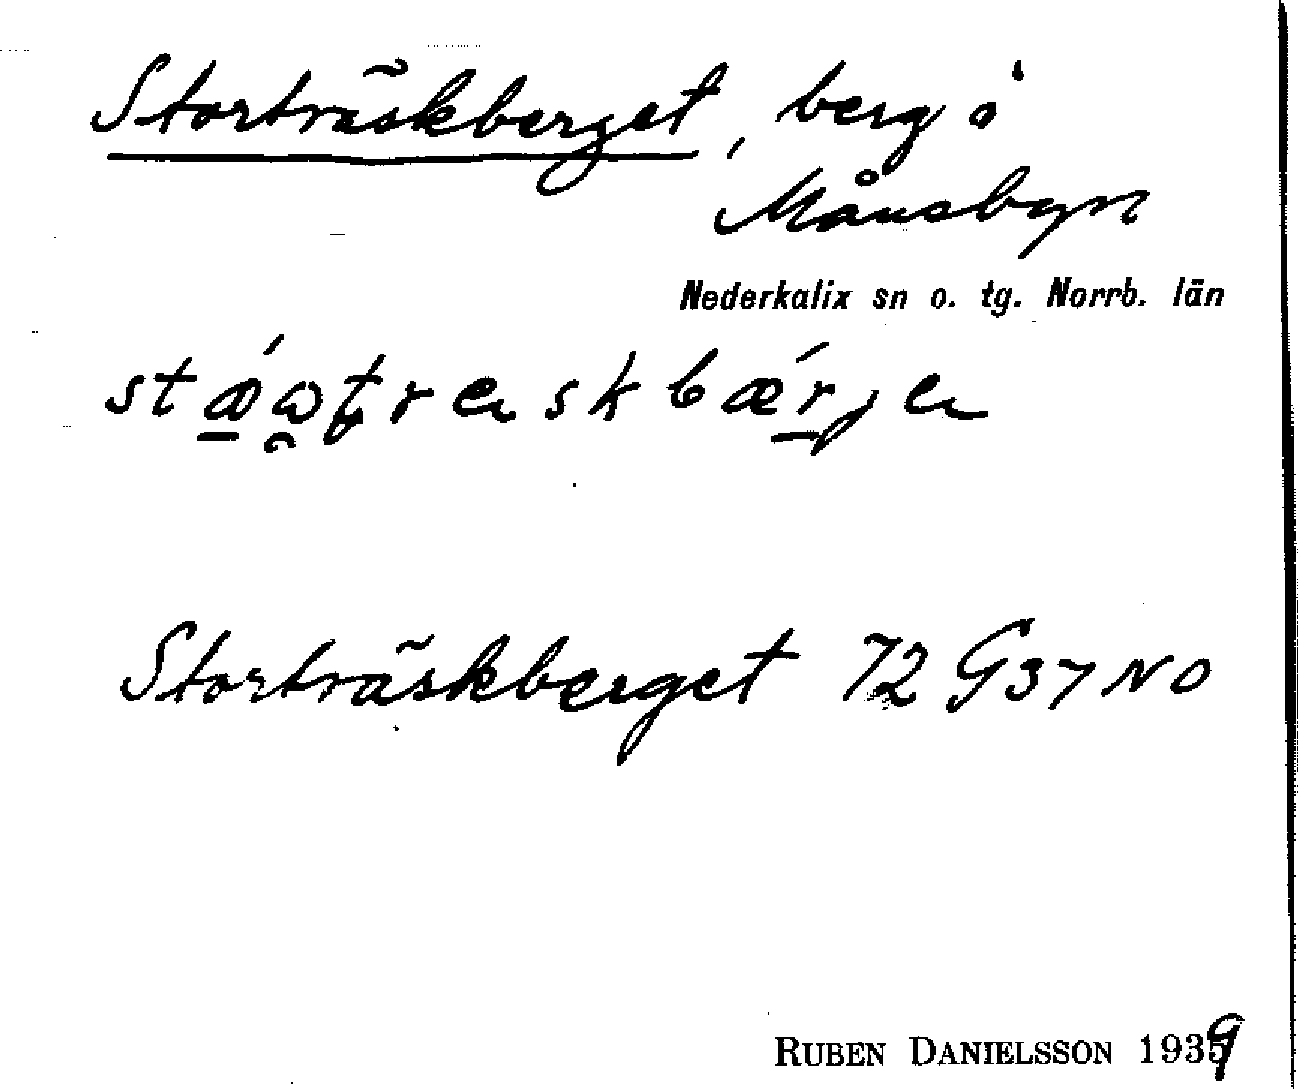 Storträskberget, berg i
Månsbyn
Nederkalix sn o. tg. Norrb. län
Storträskberget 72 G 37 NO
RUBEN DANIELSSON 1939